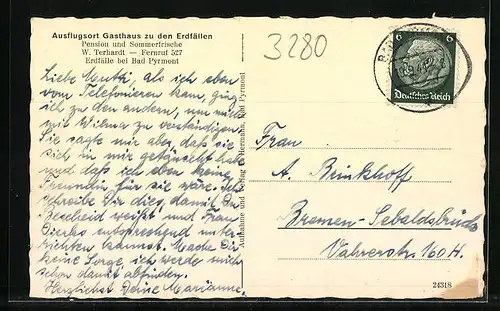 Ausflugsort Gasthaus zu den Erdfällen
Pension und Sommerfrische
W. Terhardt — Fernruf 527
Erdfälle bei Bad Pyrmont
Liebe Mutti, als ich eben
vom Telefonieren kam, ging
ich zu den andern, um mich
mit Wilma zu verständigen.
Sie sagte mir aber, daß sie
sich in mir getäuscht hab
und daß ich eben keine
Freundin für sie wäre. Ich
schreibe Dir dies, damit Du
Bescheid weißt und Frau
Dierks entsprechend unter-
richten kannst. Mache Dir
keine Sorge, ich werde mich
schon damit abfinden.
Herzlichst Deine Marianne.
Aufnahme und Verlag Bad Pyrmont
3280
6 6
Deutsches Reich
Frau
A. Brinkhoff
Bremen-Sebaldsbrück
Vahrerstr. 160 H.
24318